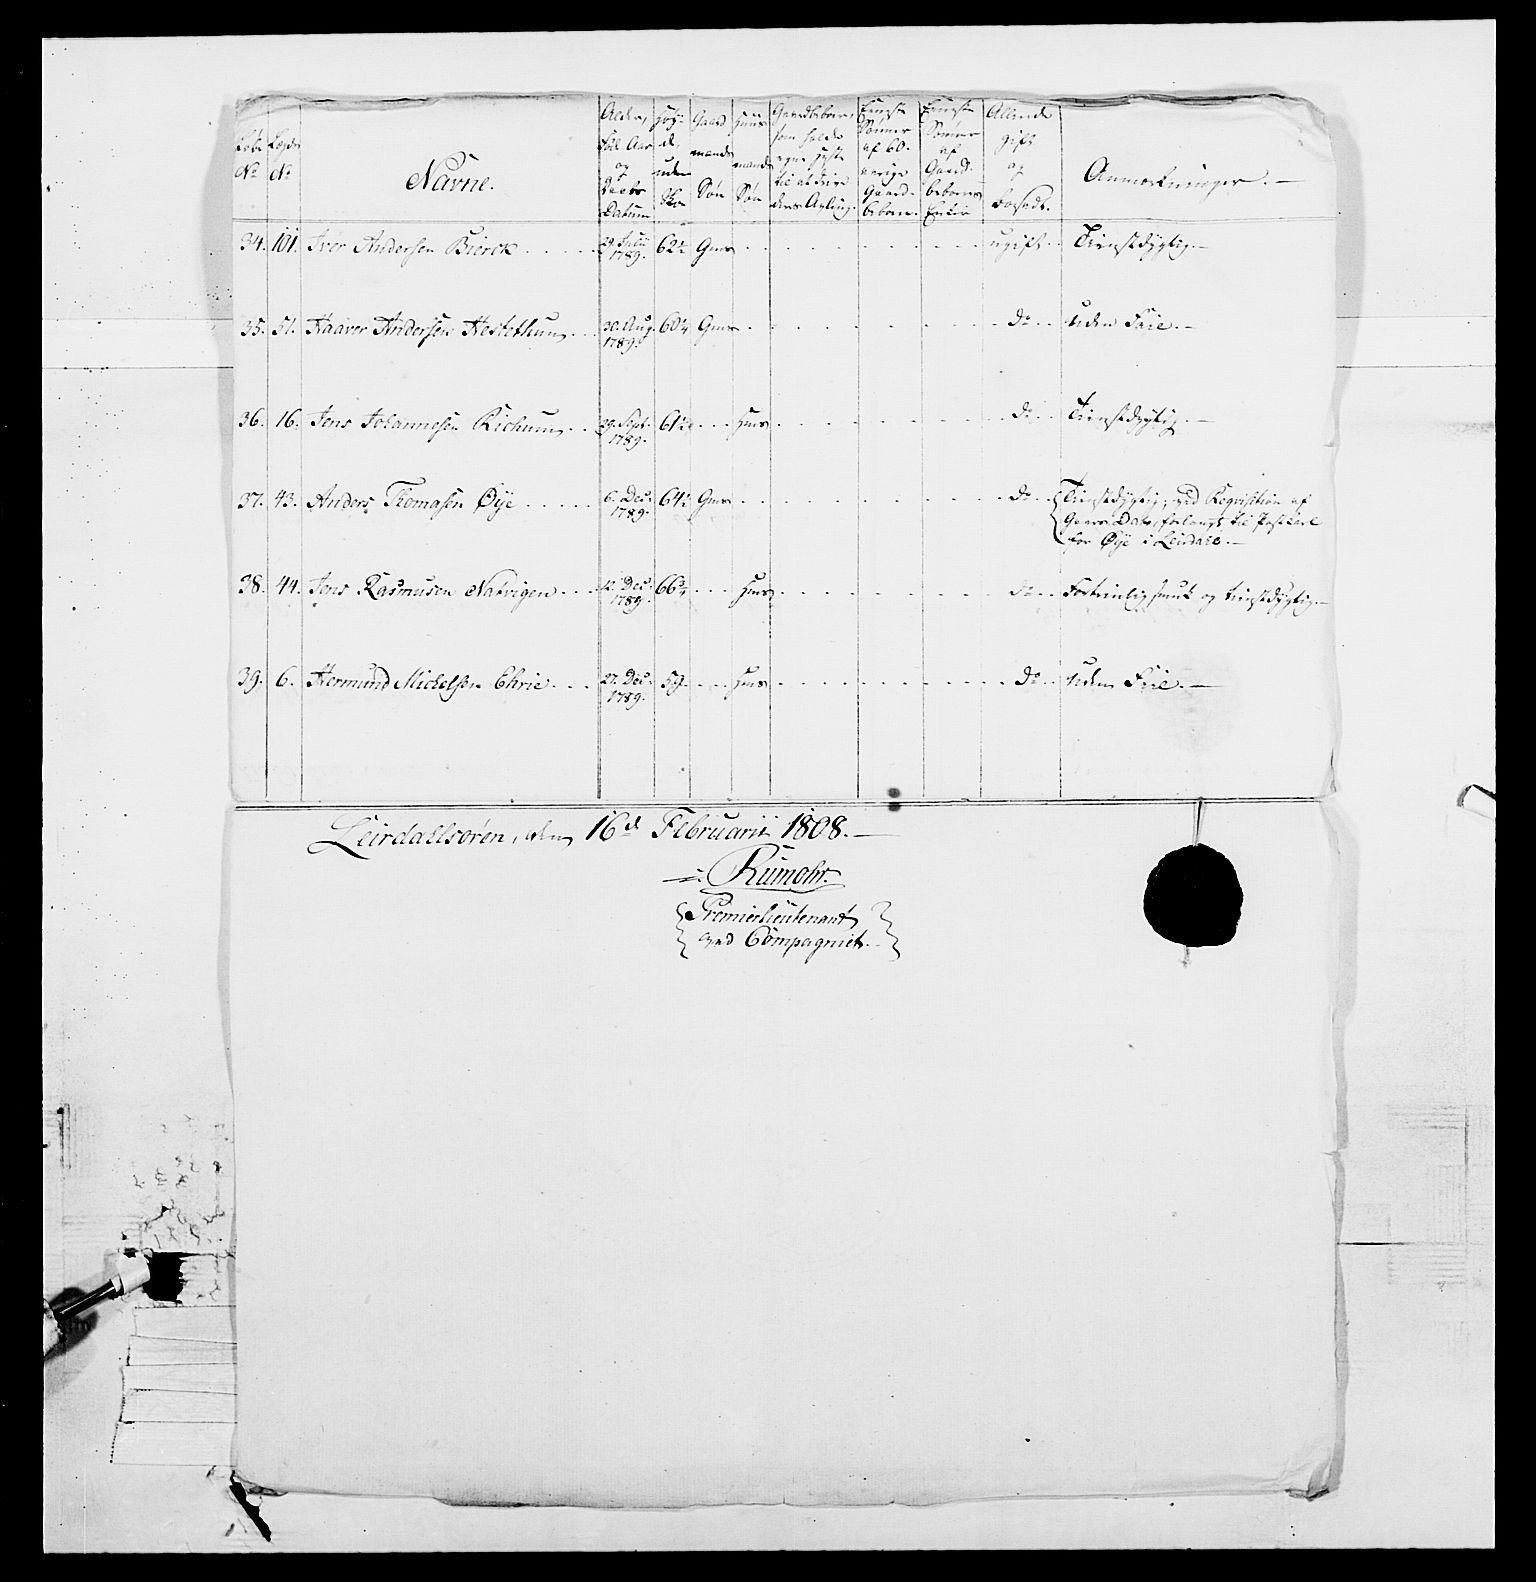 Løbe No | Lægds No | Navne. | Alder, føds Aar og Døebs Datum | Høyde, uden Skoe | Gaard mands Søn | Huus mands Søn | Gaardbeboere, som holde egne Heste til at drive deres Avling. | Eeneste Sønner af 60. aarige Gaard-beboere. | Eeneste Sønner af Gaard-beboeres Enker | Allerede gift og bosadt. | Anmerkninger. —
34. | 101. | Iver Andersen Bierck | 29. Julii 1789. | 62½ | Gms | ugift | Tienstdygtig. —
35. | 51. | Haaver Andersen Hestethun | 30. Aug. 1789. | 60¼ | Gms | do | Uden Føie. —
36. | 16. | Jens Johannesen Richum | 29. Sept. 1789. | 61½ | Hms | do | Tienstdygtig. —
37. | 43. | Anders Thomasen Øye | 6. Dec. 1789. | 64½ | Gms | do | Tienstdygtig; ved Reqvisition af
Dato, forlangt til Postkarl
for Øye i Leirdale. —
38. | 44. | Jens Rasmusen Natvigen | 12. Dec. 1789. | 66¾ | Hms | do | Fortrinlig smuk og tienstdygtig. —
39. | 6. | Hermund Michelsen Ehrie | 27. Dec. 1789. | 59 | Hms | do | Uden Føie. —
Leirdaelsøren, den 16d Februarii 1808. —
Rumohr.
Premierlieutenant
ved Compagniet.